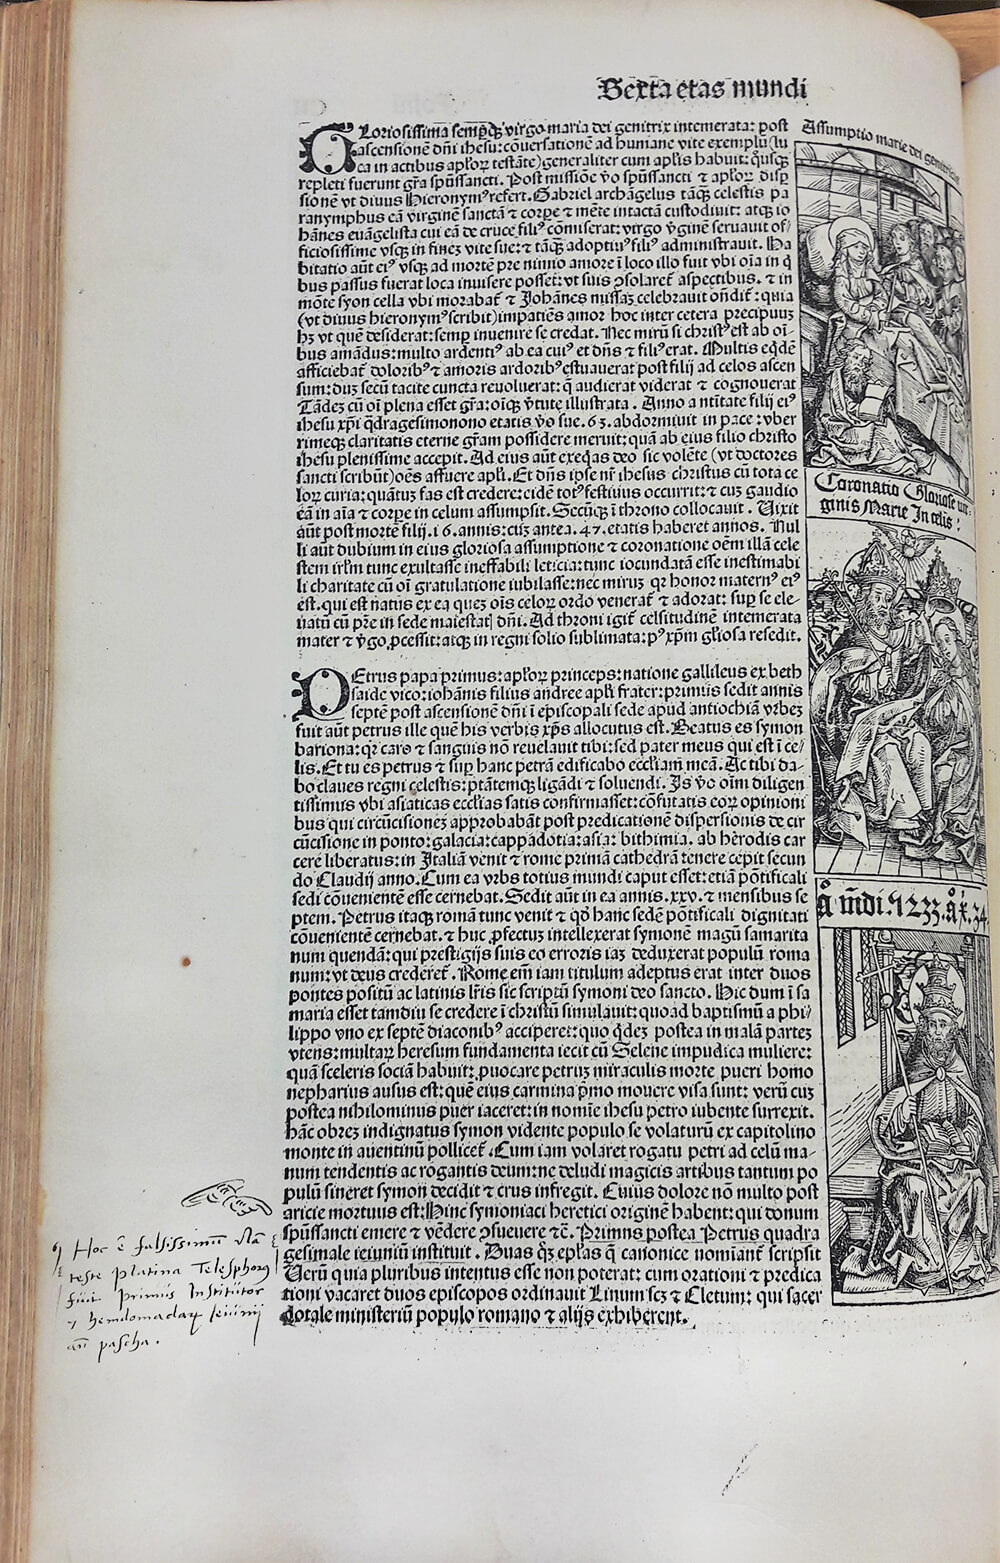 Sexta etas mundi
GLoriosissima semp̄q̃ virgo maria dei genitrix intemerata: post
ascensionē dñi ihesu: cōuersationē ad humane vite exemplū (lu
ca in actibus apl̃oꝝ testāte) generaliter cum apl̃is habuit: q̊usq̃
repleti fuerunt gr̃a sp̃ussancti. Post missiōe v̊o sp̃ussancti ⁊ apl̃oꝝ disp̱
sionē vt diuus Hieronymꝰ refert. Gabriel archāgelus tāq̃ celestis pa
ranymphus eā virginē sanctā ⁊ corpe ⁊ mēte intactā custodiuit: atq̃ io
hānes euāgelista cui eā de cruce filiꝰ cōmiserat: virgo v̊ginē seruauit of/
ficiosissime vsq̃ in finez vite sue: ⁊ tāq̃ adoptiuꝰ filiꝰ administrauit. Ha
bitatio aūt eiꝰ vsq̃ ad mortē pre nimio amore ī loco illo fuit vbi oīa in q̊
bus passus fuerat loca inuisere posset: vt suis ꝯsolaret᷑ aspectibus. ⁊ in
mōte syon cella vbi morabat᷑ ⁊ Johānes missaz celebrauit oñdit᷑: quia
(vt diuus hieronymꝰ scribit) impatiēs amor hoc inter cetera precipuuz
hꝫ vt quē desiderat: semp̱ inuenire se credat. Nec mirū si christꝰ est ab oī-
bus amādus: multo ardentiꝰ ab ea cuiꝰ et dñs ⁊ filiꝰ erat. Multis eq̊dē
afficiebat᷑ doloribꝰ ⁊ amoris ardoribꝰ estuauerat post filij ad celos ascen
sum: duz secū tacite cuncta reuolueret: q̄ audierat viderat ⁊ cognouerat
Tādez cū oī plena esset gr̃a: oīq̃ v̊tute illustrata. Anno a nr̄itate filij eiꝰ
ihesu xp̄i q̊dragesimonono etatis v̊o sue. 63. abdormiuit in pace: vber
rimeq̃ claritatis eterne gr̃am possidere meruit: quā ab eius filio christo
ihesu plenissime accepit. Ad eius aūt exeq̊as deo sic volēte (vt doctores
sancti scribūt) oēs affuere apl̃i. Et dñs ipse nr̄ ihesus christus cū tota ce
loꝝ curia: quātuz fas est credere: eidē totꝰ festiuus occurrit: ⁊ cuz gaudio
eā in aīa ⁊ corpe in celum assumpsit. Secūq̃ ī throno collocauit. Vixit
aūt post mortē filij. 16. annis: cuz antea. 47. etatis haberet annos. Nul
li aūt dubium in eius gloriosa assumptione ⁊ coronatione oēm illā cele
stem irl̃m tunc exultasse ineffabili leticia: tunc iocundatā esse inestimabi
li charitate cū oī gratulatione iubilasse: nec miruz qꝛ honor maternꝰ eiꝰ
est. qui est natus ex ea quez oīs celoꝝ ordo venerat᷑ ⁊ adorat: sup̱ se ele-
uatū cū pr̄e in sede maiestatꝭ dñi. Ad throni igit᷑ celsitudinē intemerata
mater ⁊ v̊go ꝓcessit: atq̃ in regni solio sublimata: pꝰ xp̄m gl̃iosa resedit.
PEtrus papa primus: apl̃oꝝ princeps: natione gallileus ex beth
saide vico: iohānis filius andree apl̃i frater: primus sedit annis
septē post ascensionē dñi ī episcopali sede apud antiochiā vrbez
fuit aūt petrus ille quē his verbis xp̄s allocutus est. Beatus es symon
bariona: qꝛ caro ⁊ sanguis nō reuelauit tibi: sed pater meus qui est ī ce/
lis. Et tu es petrus ⁊ sup̱ hanc petrā edificabo eccl̃iam meā. Ac tibi da-
bo claues regni celestis: ptātemq̃ ligādi ⁊ soluendi. Is v̊o oīm diligen
tissimus vbi asiaticas eccl̃ias satis confirmasset: cōfutatis eoꝝ opinioni
bus qui circūcisionez approbabāt post predicationē dispersionis de cir
cūcisione in ponto: galacia: cappadotia: asia: bithimia. ab hērodis car
cere liberatus: in Italiā venit ⁊ rome primā cathedrā tenere cepit secun
do Claudij anno. Cum ea vrbs totius mundi caput esset: etiā pōtificali
sedi cōuenientē esse cernebat. Sedit aūt in ea annis. xxv. ⁊ mensibus se
ptem. Petrus itaq̃ romā tunc venit ⁊ qd̊ hanc sedē pōtificali dignitati
cōuenientē cernebat. ⁊ huc ꝓfectus intellexerat symonē magū samarita
num quendā: qui prestigijs suis eo erroris iaz deduxerat populū roma
num: vt deus crederet᷑. Rome eīm iam titulum adeptus erat inter duos
pontes positū ac latinis lr̄is sic scriptū symoni deo sancto. Hic dum ī sa
maria esset tamdiu se credere ī christū simulauit: quoad baptismū a phi/
lippo vno ex septē diaconibꝰ acciperet: quo q̊dez postea in malā partez
vtens: multaꝝ heresum fundamenta iecit cū Selene impudica muliere:
quā sceleris sociā habuit: ꝓuocare petruz miraculis morte pueri homo
nepharius ausus est: quē eius carmina p̊mo mouere visa sunt: verū cuz
postea nihilominus puer iaceret: in nomīe ihesu petro iubente surrexit.
hāc obrez indignatus symon vidente populo se volaturū ex capitolino
monte in auentinū pollicet᷑. Cum iam volaret rogatu petri ad celū ma-
num tendentis ac rogantis deum: ne deludi magicis artibus tantum po
pulū sineret symon decidit ⁊ crus infregit. Cuius dolore nō multo post
aricie mortuus est: Hinc symoniaci heretici originē habent: qui donum
sp̃ussancti emere ⁊ vēdere ꝯsueuere ⁊c̄. Primus postea Petrus quadra
gesimale ieiuniū instituit. Duas q̊ꝫ ep̄las q̄ canonice nomīant᷑ scripsit
Verū quia pluribus intentus esse non poterat: cum orationi ⁊ predica
tioni vacaret duos episcopos ordinauit Linum scꝫ ⁊ Cletum: qui sacer
dotale ministeriū populo romano ⁊ alijs exhiberent.
Assumptio marie dei genitricis
Coronatio Gloriose uir:
ginis Marie In celis:
Å m̄di. 5233. å x̊. 34
Hoc ē falsissimū
teste platina Telesphorꝰ
fuit primus Institutor
7 hemdomadaꝝ Ieiunij
añ pascha.